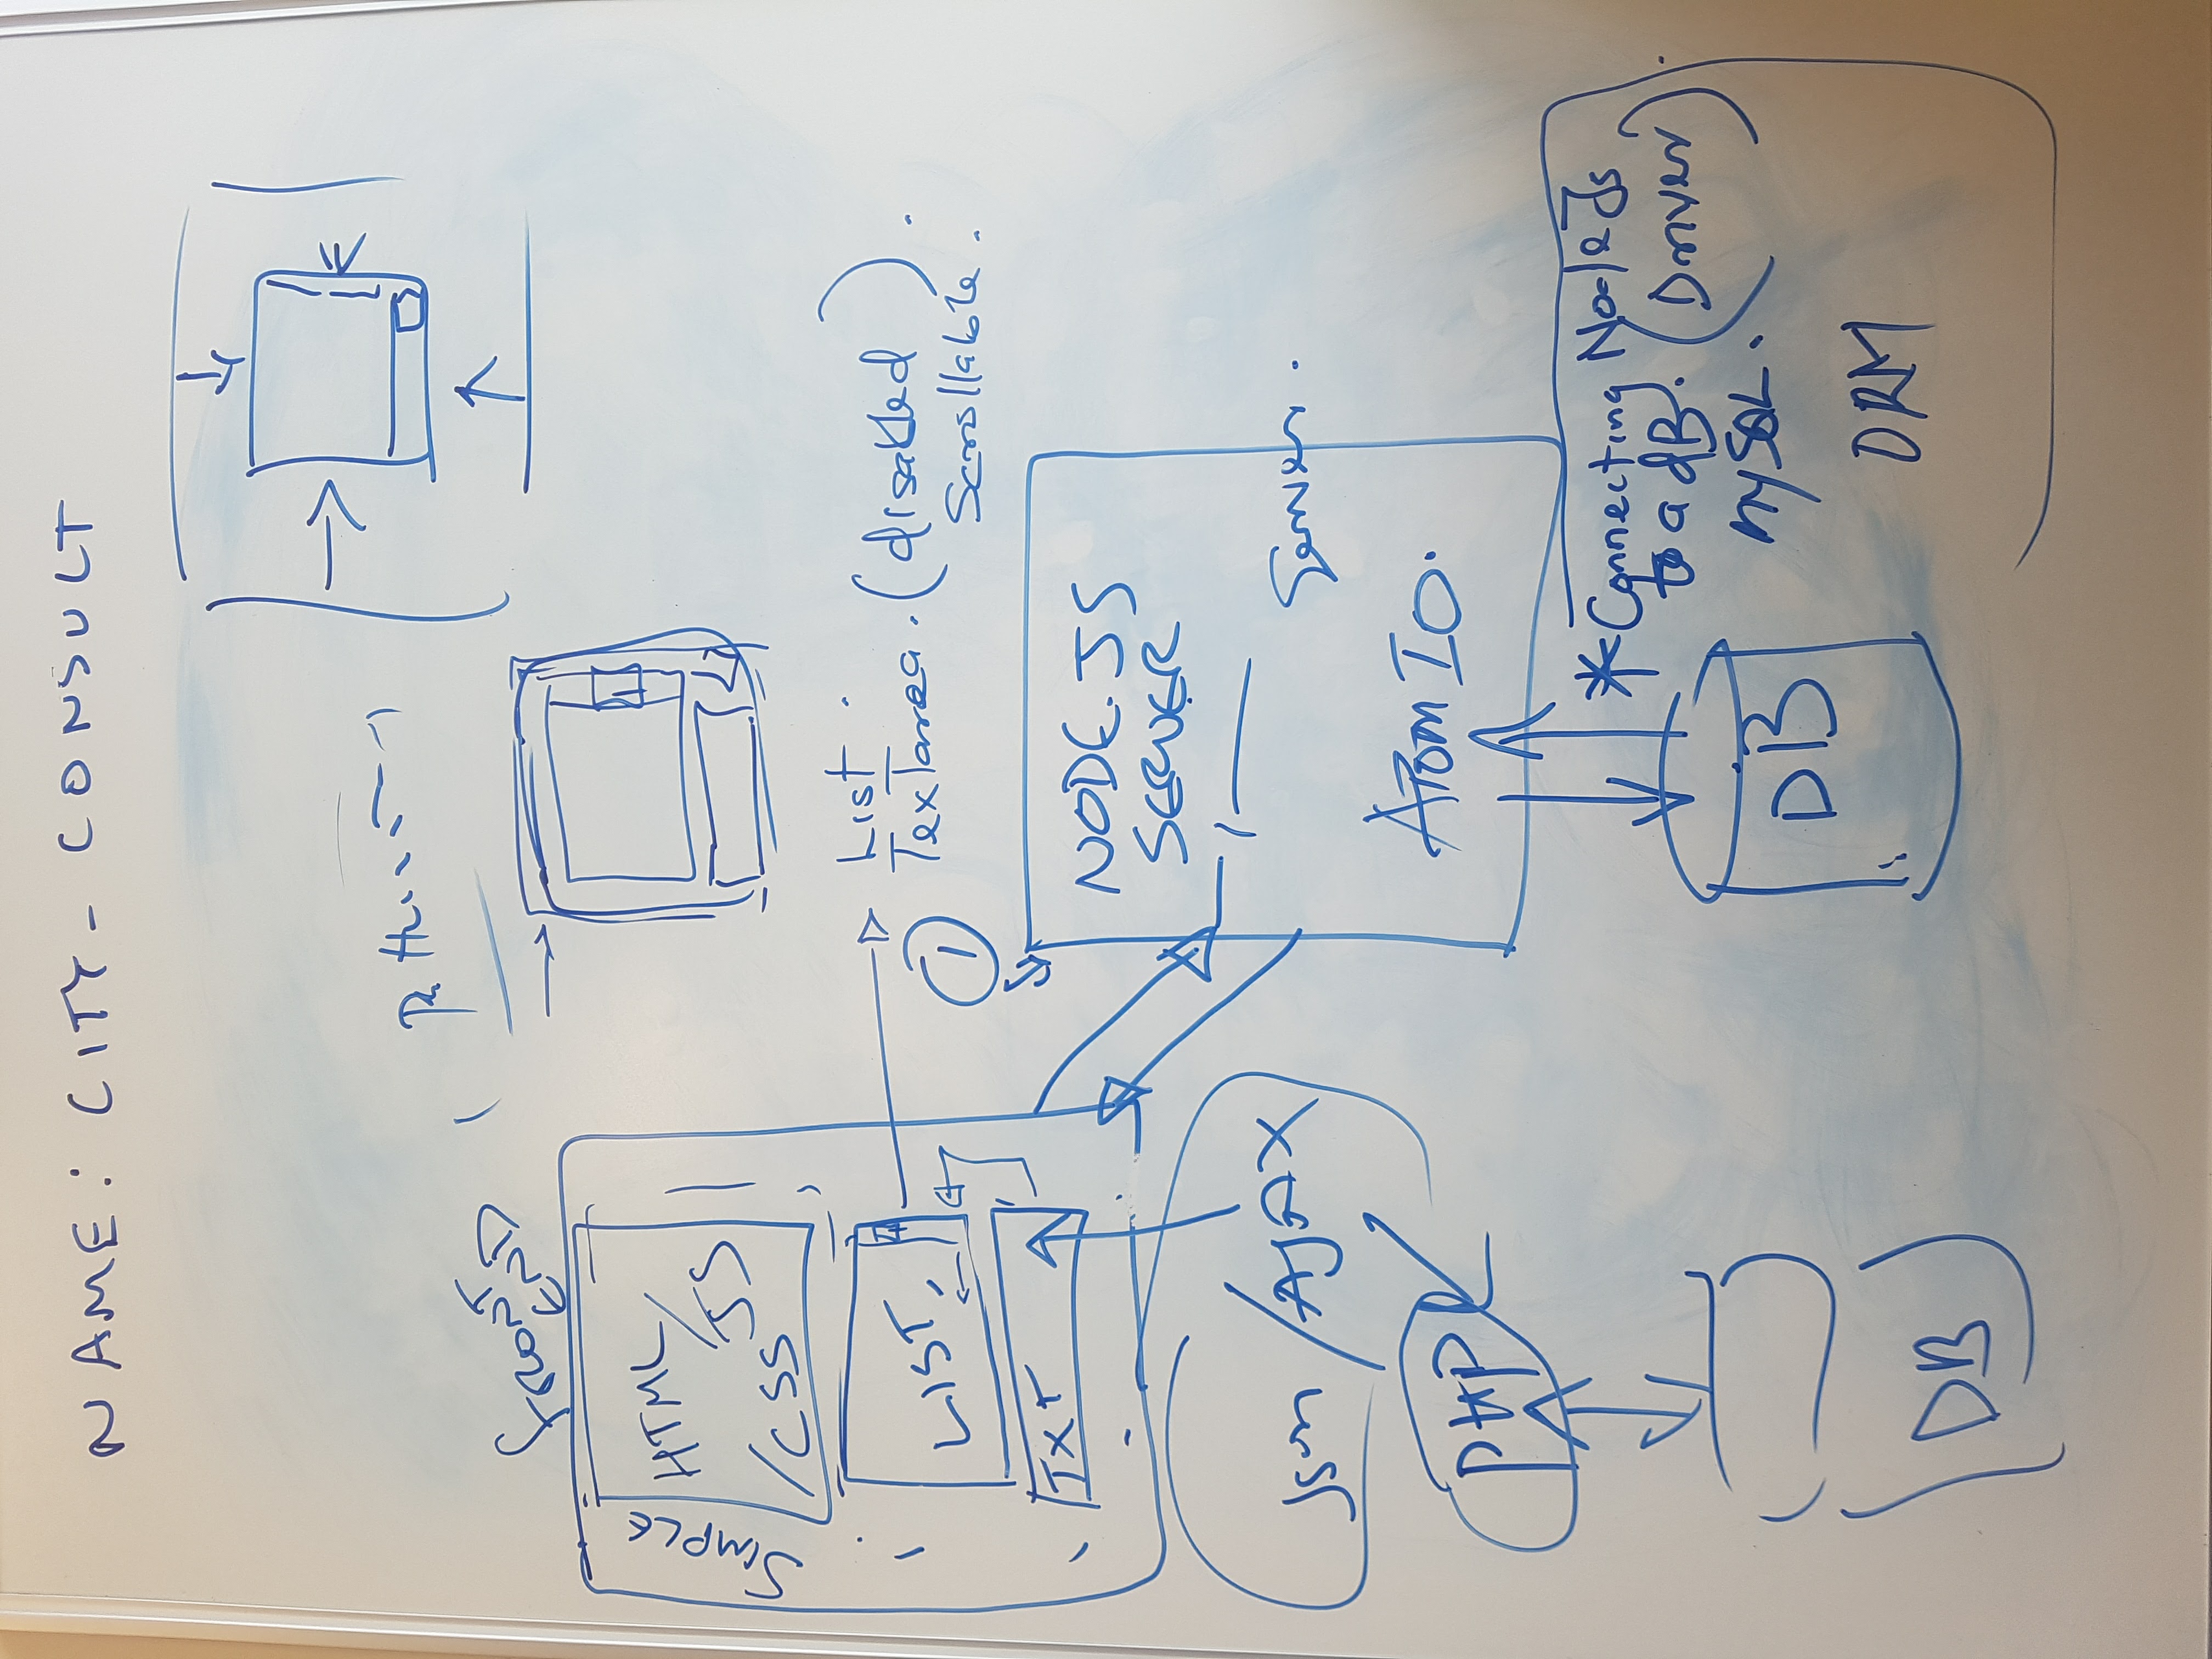 NAME: CITY-CONSULT
FRONT
END
SIMPLE
HTML/
JS
/CSS
LIST.
TXT
List.
Textarea. (disabled)
Scrollable.
1
NODE.JS
SERVER
Server.
ATOM IO.
Json /AJAX
PHP
DB
* Connecting NodeJs
to a dB. (Driver)
MySQL.
ORM
DB